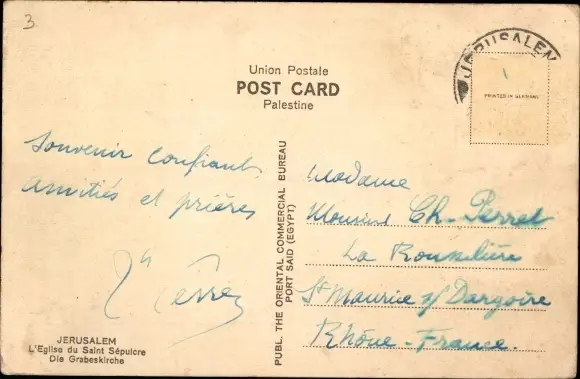 3
Union Postale
POST CARD
Palestine
JERUSALEM
PRINTED IN GERMANY
Souvenir confiant
amitiés et prières
PUBL. THE ORIENTAL COMMERCIAL BUREAU
PORT SAID (EGYPT)
Madame
Ch. Perret
La
St Maurice s/ Dargoire
Rhône - France.
JERUSALEM
L'Eglise du Saint Sépulcre
Die Grabeskirche